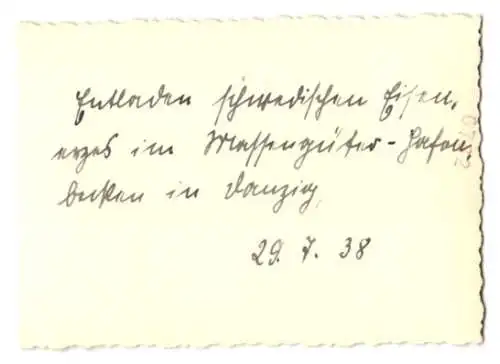 Entladen schwedischen Eisen-
erzes im Massengüter-Hafen-
becken in Danzig,
29. 7. 38